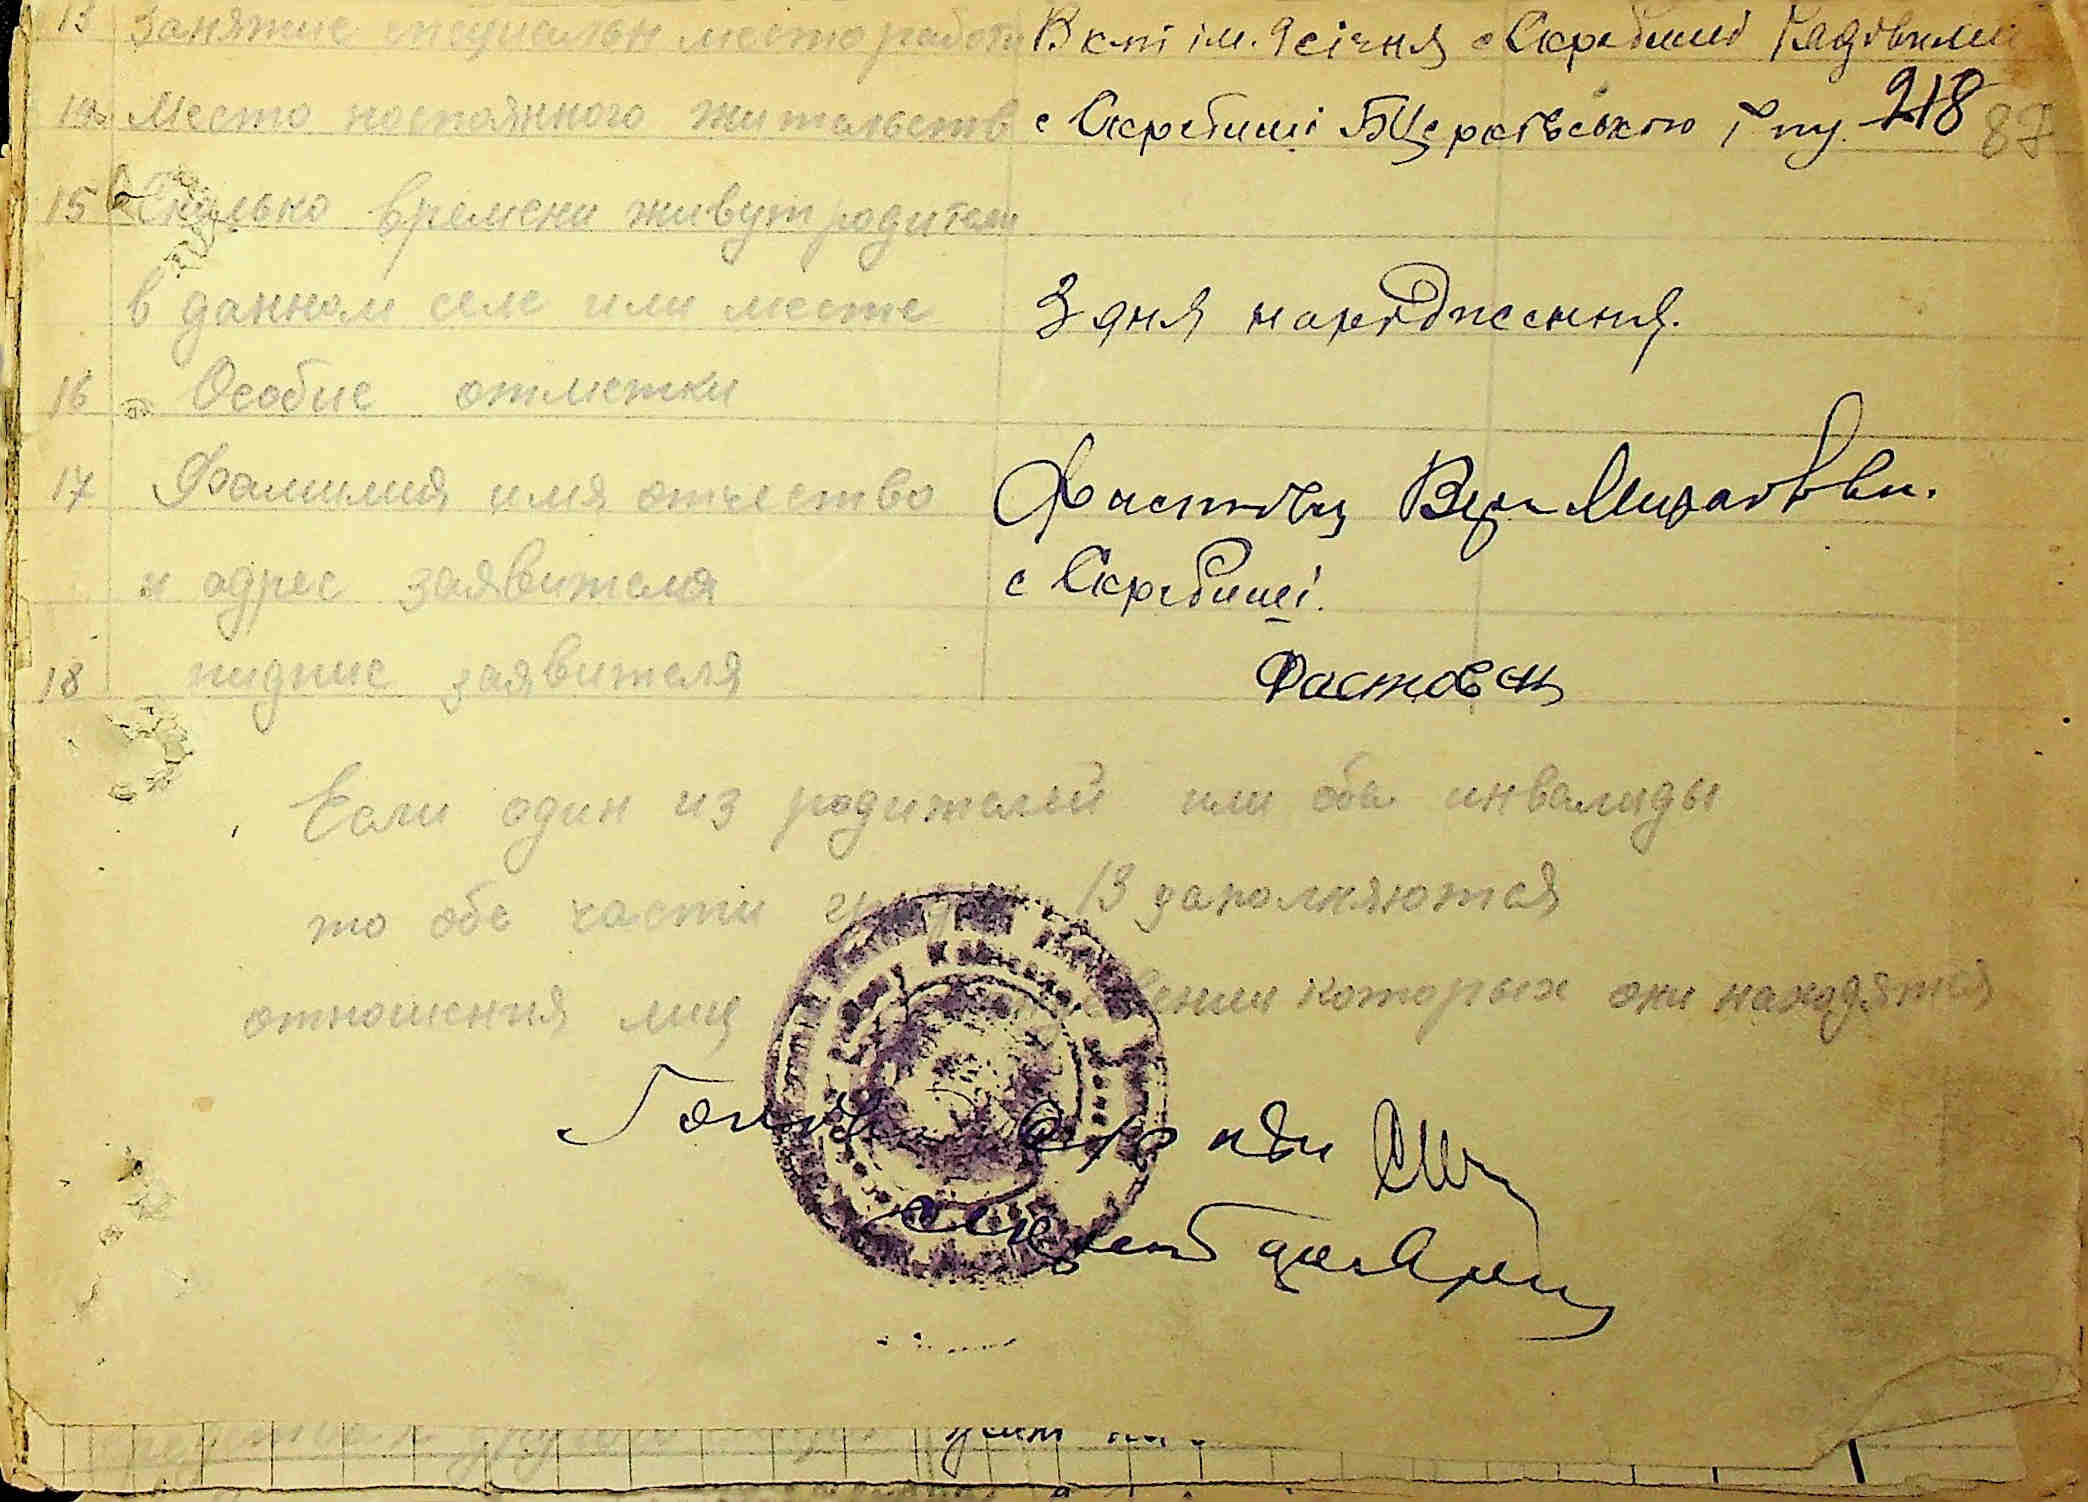 13 Занятие специальн место работы В кгпі ім. 9 січня с Скребиші
14 Место постоянного жительств с Скребиші БЦерківського р ну. 218 87
15 Сколько времени живут родители
в данном селе или месте З дня народження.
16 Особие отметки
17 Фамилия имя отчество Фастовец Вера Михайловна.
и адрес заявителя с Скребиші.
18 пидпис заявителя Фастовец
Если один из родителей или оба инвалиды
то обе части 13 заполняются
отношения лиц которых они находятся
Голова с/р
секретар